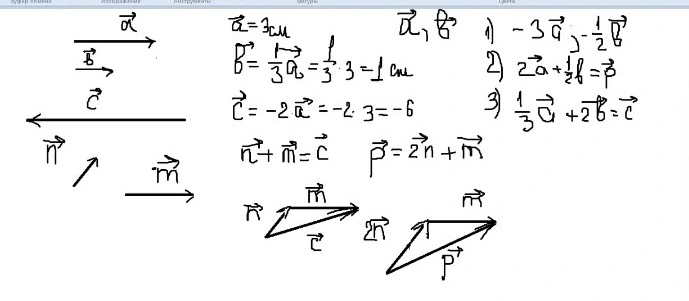 Буфер обмена Изображение Инструменты Фигуры Цвета
a⃗
b⃗
c⃗
n⃗
m⃗
a⃗ = 3 см
b⃗ = 1/3 a⃗ = 1/3 · 3 = 1 см
c⃗ = -2·a⃗ = -2·3 = -6
n⃗ + m⃗ = c⃗ p⃗ = 2n⃗ + m⃗
n⃗ m⃗ c⃗
2n⃗ m⃗ p⃗
a⃗, b⃗
1) -3a⃗; -1/2 b⃗
2) 2a⃗ + 1/2 b⃗ = p⃗
3) 1/3 a⃗ + 2b⃗ = c⃗